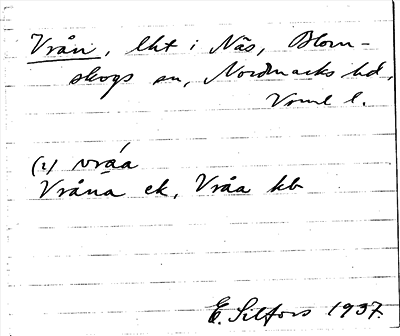 Vrån, lht i Näs, Blom-
skogs sn, Nordmarks hd,
Vrml l.
(i) vráa
Vråna ek, Vråa kb
E. Silfors 1937.